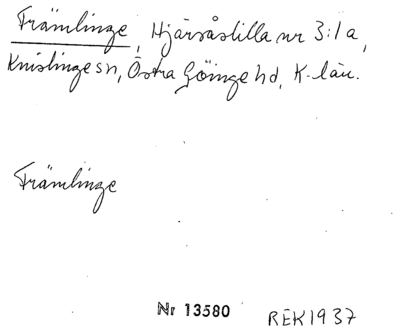 Främlinge, Hjärsåslilla nr 3:1a,
Knislinge sn, Östra Göinge hd, K-län.
Främlinge
Nr 13580 REK1937